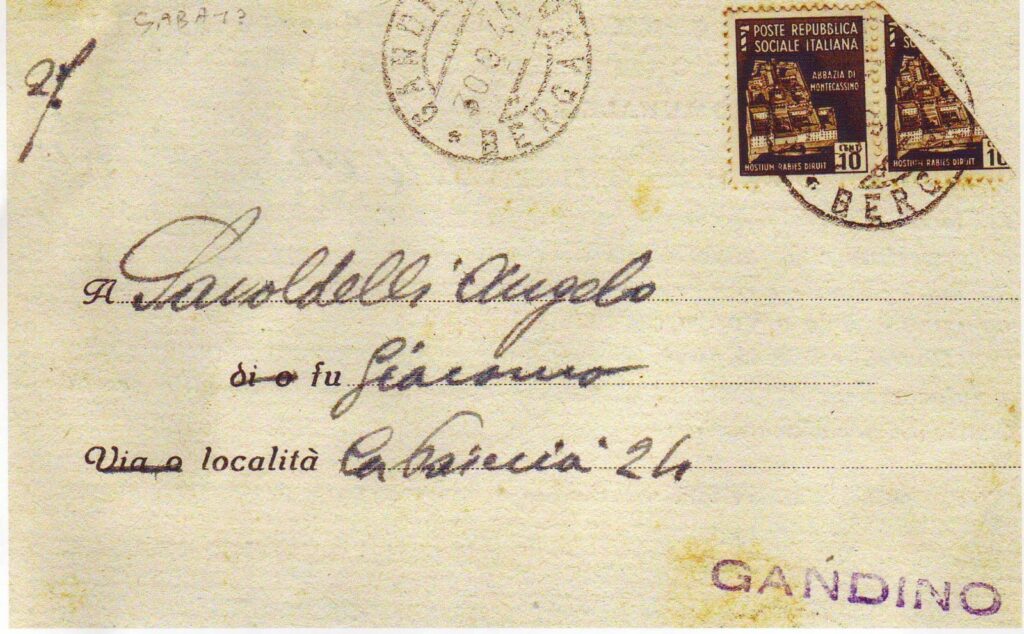 GABA 1?
2f
GANDI
30.9.44
* BERGA
POSTE REPUBBLICA
SOCIALE ITALIANA
ABBAZIA DI
MONTECASSINO
CENT.
10
HOSTIUM RABIES DIRUIT
HOSTIUM RABIES DIRUIT
10
* BERG
A Savoldelli Angelo
di o fu Giacomo
Via o località 24
GANDINO